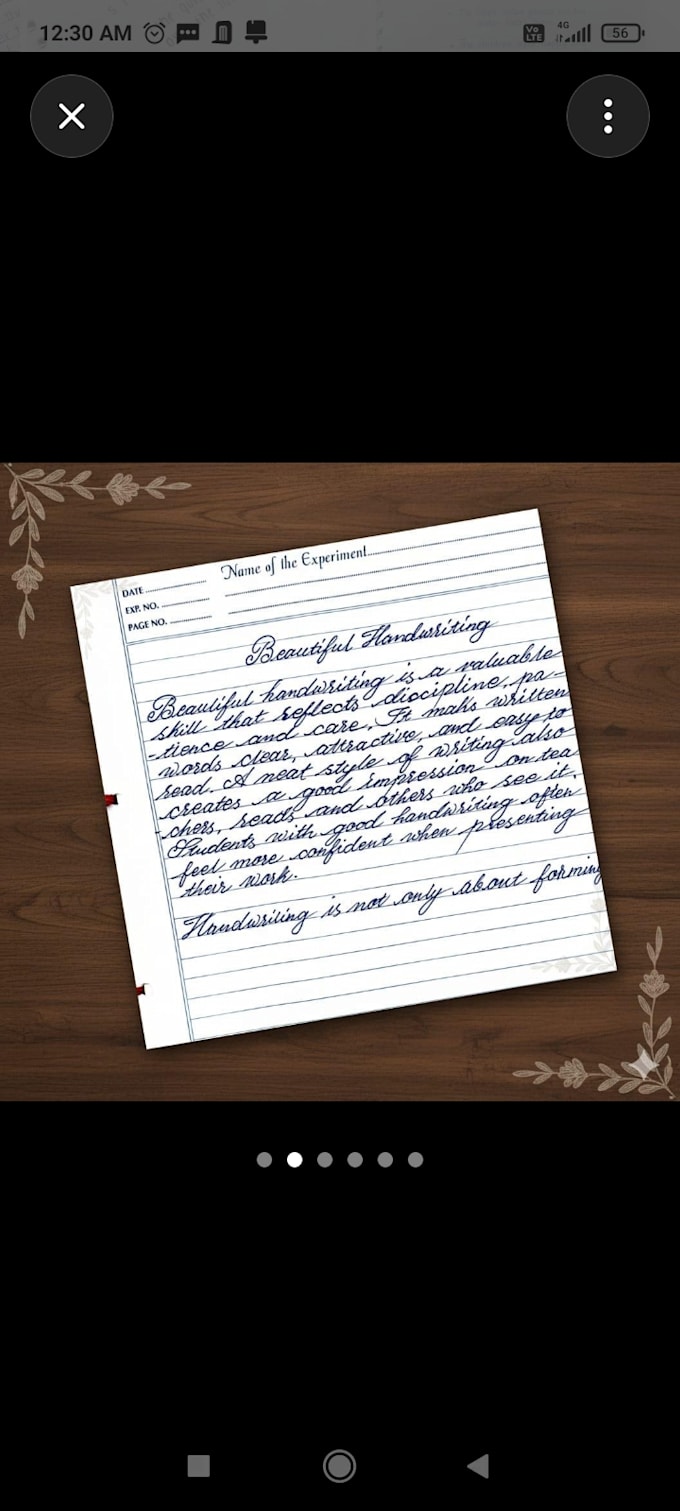 12:30 AM
Vo LTE 4G 56
Name of the Experiment
DATE
EXP. NO.
PAGE NO.
Beautiful Handwriting
Beautiful handwriting is a valuable
skill that reflects diocipline, pa-
-tience and care. It maks written
words clear, attractive, and easy to
read. A neat style of writing also
creates a good impression on tea
-chers, reads and others who see it.
Students with good handwriting often
feel more confident when presenting
their work.
Handwriting is not only about forming